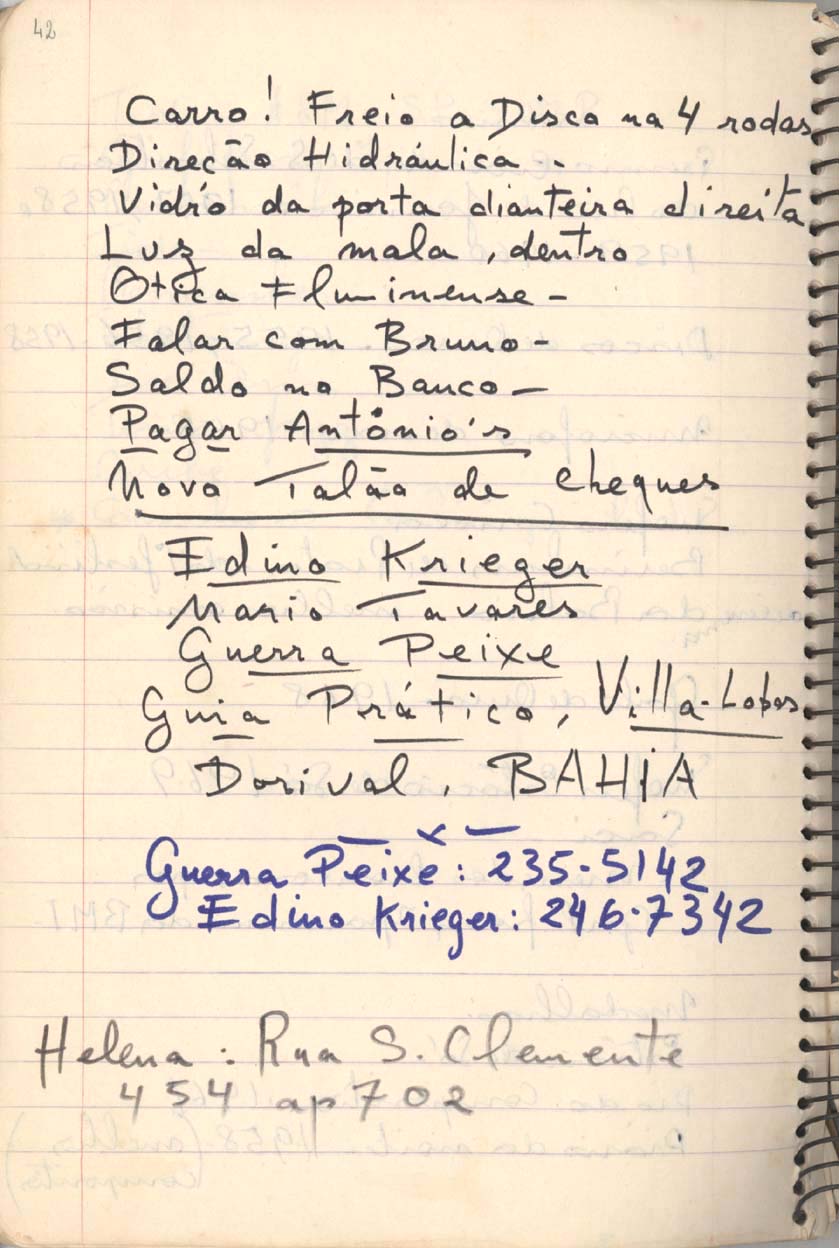 42
Carro! Freio a Disco na 4 rodas
Direção Hidráulica -
Vidro da porta dianteira direita
Luz da mala, dentro
Otica Fluminense -
Falar com Bruno -
Saldo no Banco -
Pagar Antônio's
Novo Talão de cheques
Edino Krieger
Mario Tavares
Guerra Peixe
Guia Prático, Villa-Lobos
Dorival, BAHIA
Guerra Peixe: 235-5142
Edino Krieger: 246-7342
Helena: Rua S. Clemente
454 ap 702